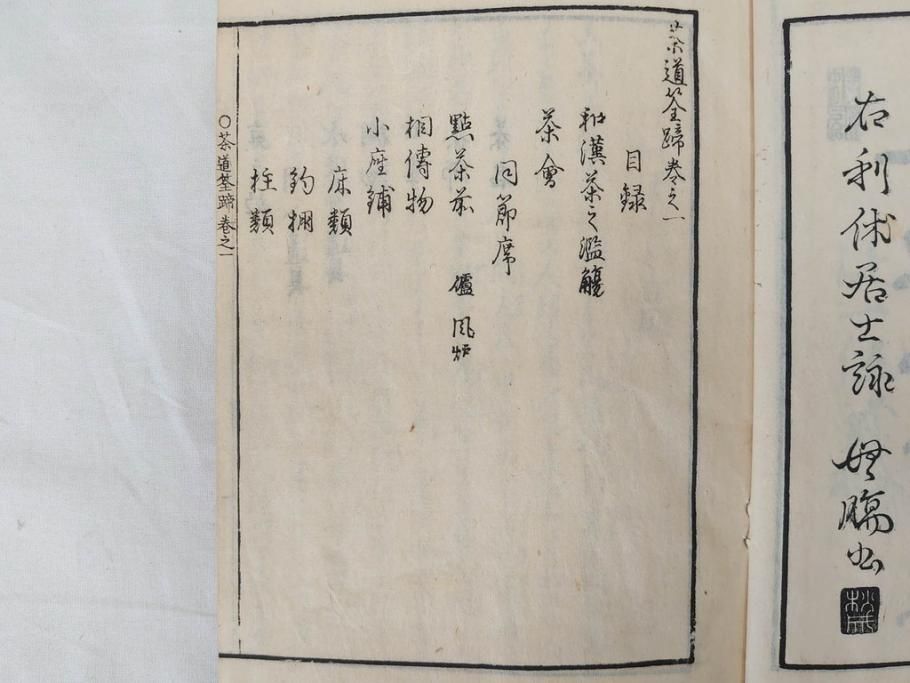 右利休居士詠 無腸書
茶道筌蹄巻之一
目録
和漢茶之濫觴
茶會
同節席
點茶苶 爐 風炉
相傳物
小座鋪
床類
釣棚
柱類
〇茶道筌蹄 巻之一